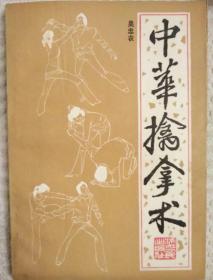 中华擒拿术
吴忠农